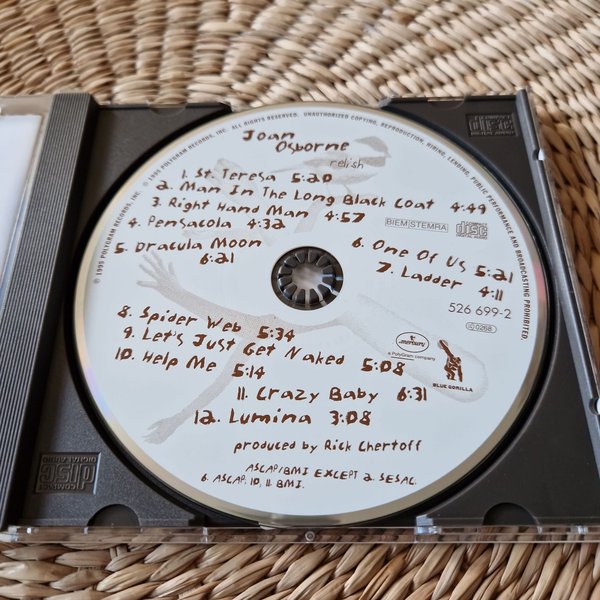 © 1995 POLYGRAM RECORDS, INC. ALL RIGHTS RESERVED. UNAUTHORIZED COPYING, REPRODUCTION, HIRING, LENDING, PUBLIC PERFORMANCE AND BROADCASTING PROHIBITED.
℗ 1995 POLYGRAM RECORDS, INC.
Joan
Osborne
relish
1. St. Teresa 5:20
2. Man In The Long Black Coat 4:49
3. Right Hand Man 4:57
4. Pensacola 4:32
BIEM/STEMRA
COMPACT
disc
DIGITAL AUDIO
5. Dracula Moon
6:21
6. One Of Us 5:21
7. Ladder 4:11
526 699-2
8. Spider Web 5:34
9. Let's Just Get Naked 5:08
10. Help Me 5:14
11. Crazy Baby 6:31
12. Lumina 3:08
mercury
a PolyGram company
BLUE GORILLA
produced by Rick Chertoff
ASCAP/BMI EXCEPT 2. SESAC.
6. ASCAP, 10, 11. BMI.
COMPACT
disc
DIGITAL AUDIO
COMPACT
disc
DIGITAL AUDIO